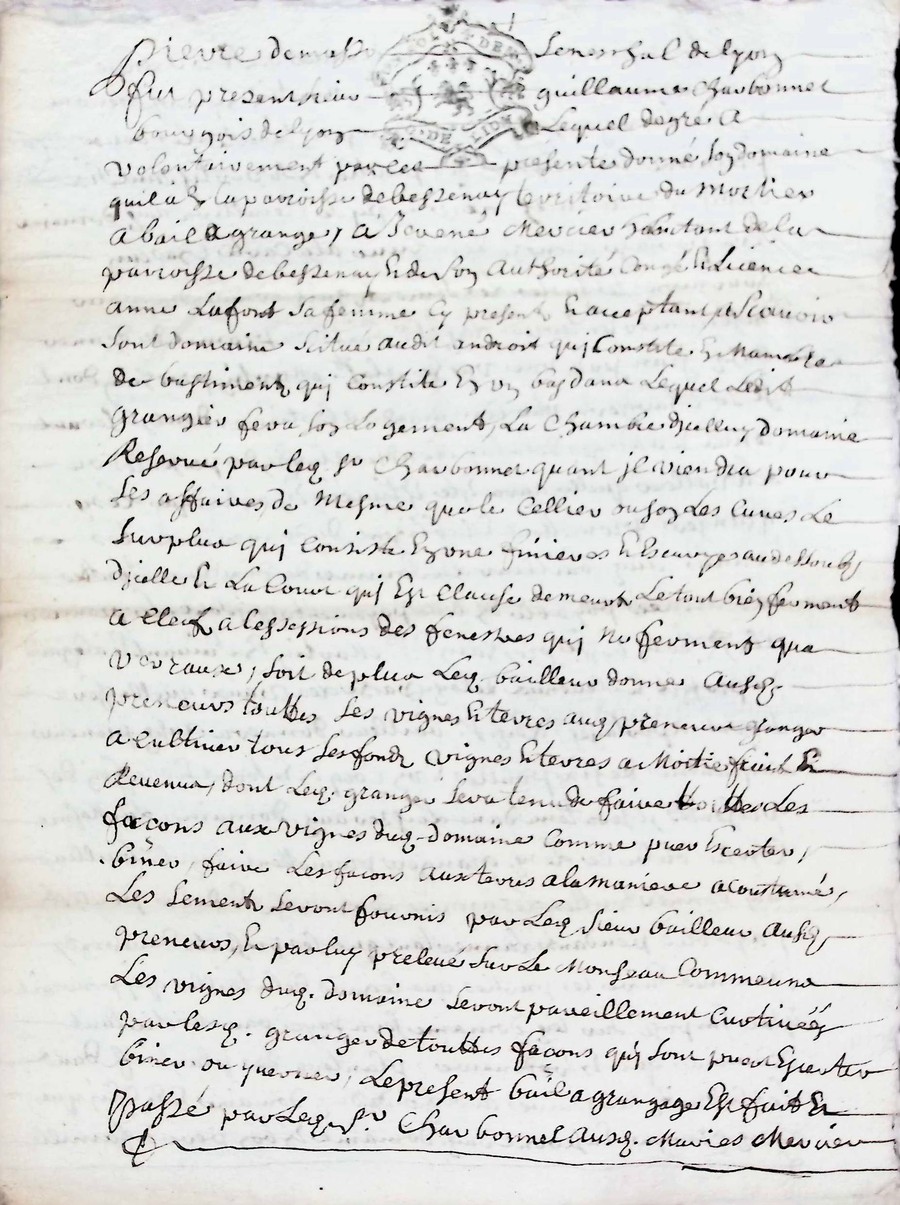 Pierre demasso Seneschal de lyon
fut present sieur guillaume Charbonnet
bourgois de lyon Lequel de gre A
volontairement par les presente donné son domaine
quil a En la parroisse de bessenay territoire du Mortier
A bail a grange, A Mercier habitant de la
parroisse de bessenay Et de son Authorité Congé Et licence
anne Lafont sa femme Cy present Et acceptant, A Scavoir
Sont domaine Scitue audit androit quj Consiste En Mambre
de bastiment quj Consiste En un bas dans Lequel Ledit
Grangier fera son Logement, La Chambre djcelluy domaine
Reservé par leq. sr Charbonnet quant jl viendra pour
Ses affaires, de Mesme que le Cellier ou son Les Cuves Le
Surplus quj Consiste En une finieres Et Escuryes au dessoubz
Djcelle Et La Cour quj Est Clause de meur Le tout bien ferment
A Clef, a lessessions des fenestres quj ne ferment qua
Verraux, soit de plus Leq. bailleur donne Ausq.
preneurs touttes Les vignes Et terres auq. preneur granger
A Cultiver tous Les fondz vignes Et terres a Moitie fruit Et
Revenus, dont Leq. granger sera tenu de faire touttes Les
façons aux vignes duq. domaine Comme puer Escerter,
biner, faire Les façons aux terres a la maniere acoutumé,
Les Sementz Seront fournis par Leq. Sieur bailleur Ausq.
preneurs, Et par luy prelevé Sur Le Monseau Commeune
Les vignes duq. domaine Seront pareillement Curtivéés
par lesq. granger de touttes façons quj sont puer Escerter
biner ou, Le present bail a grangage Est fait Et
Passé par Leq. sr. Charbonnet Ausq. Maries Mercier